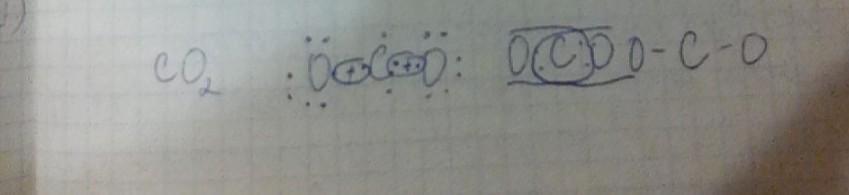 CO₂ :O C O: O C O O-C-O